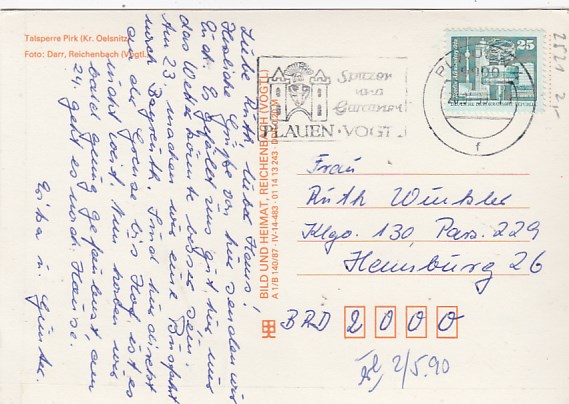 Talsperre Pirk (Kr. Oelsnitz)
Foto: Darr, Reichenbach (Vogtl.)
Liebe Ruth, lieber Hans!
Herzliche Grüße von hier senden wir
Euch. Es gefällt uns gut, hier nur
das Wetter könnte besser sein.
Am 23. machen wir eine Busfahrt
nach Bayreuth. Sind hier direkt
an der Grenze bis Hof ist es
nicht weit. Nun haben wir
bald genug gefaulenzt, am
24. geht es nach Hause.
u. Günter.
BILD UND HEIMAT, REICHENBACH (VOGTL.)
A 1/B 140/87 · IV-14-483 · 01 14 13 243
Spitzen
und
Gardinen
PLAUEN · VOGTL
25
2521
Frau
Ruth Winkler
Klgo. 130 Parz. 229
Hamburg 26
BRD 2000
2/5.90